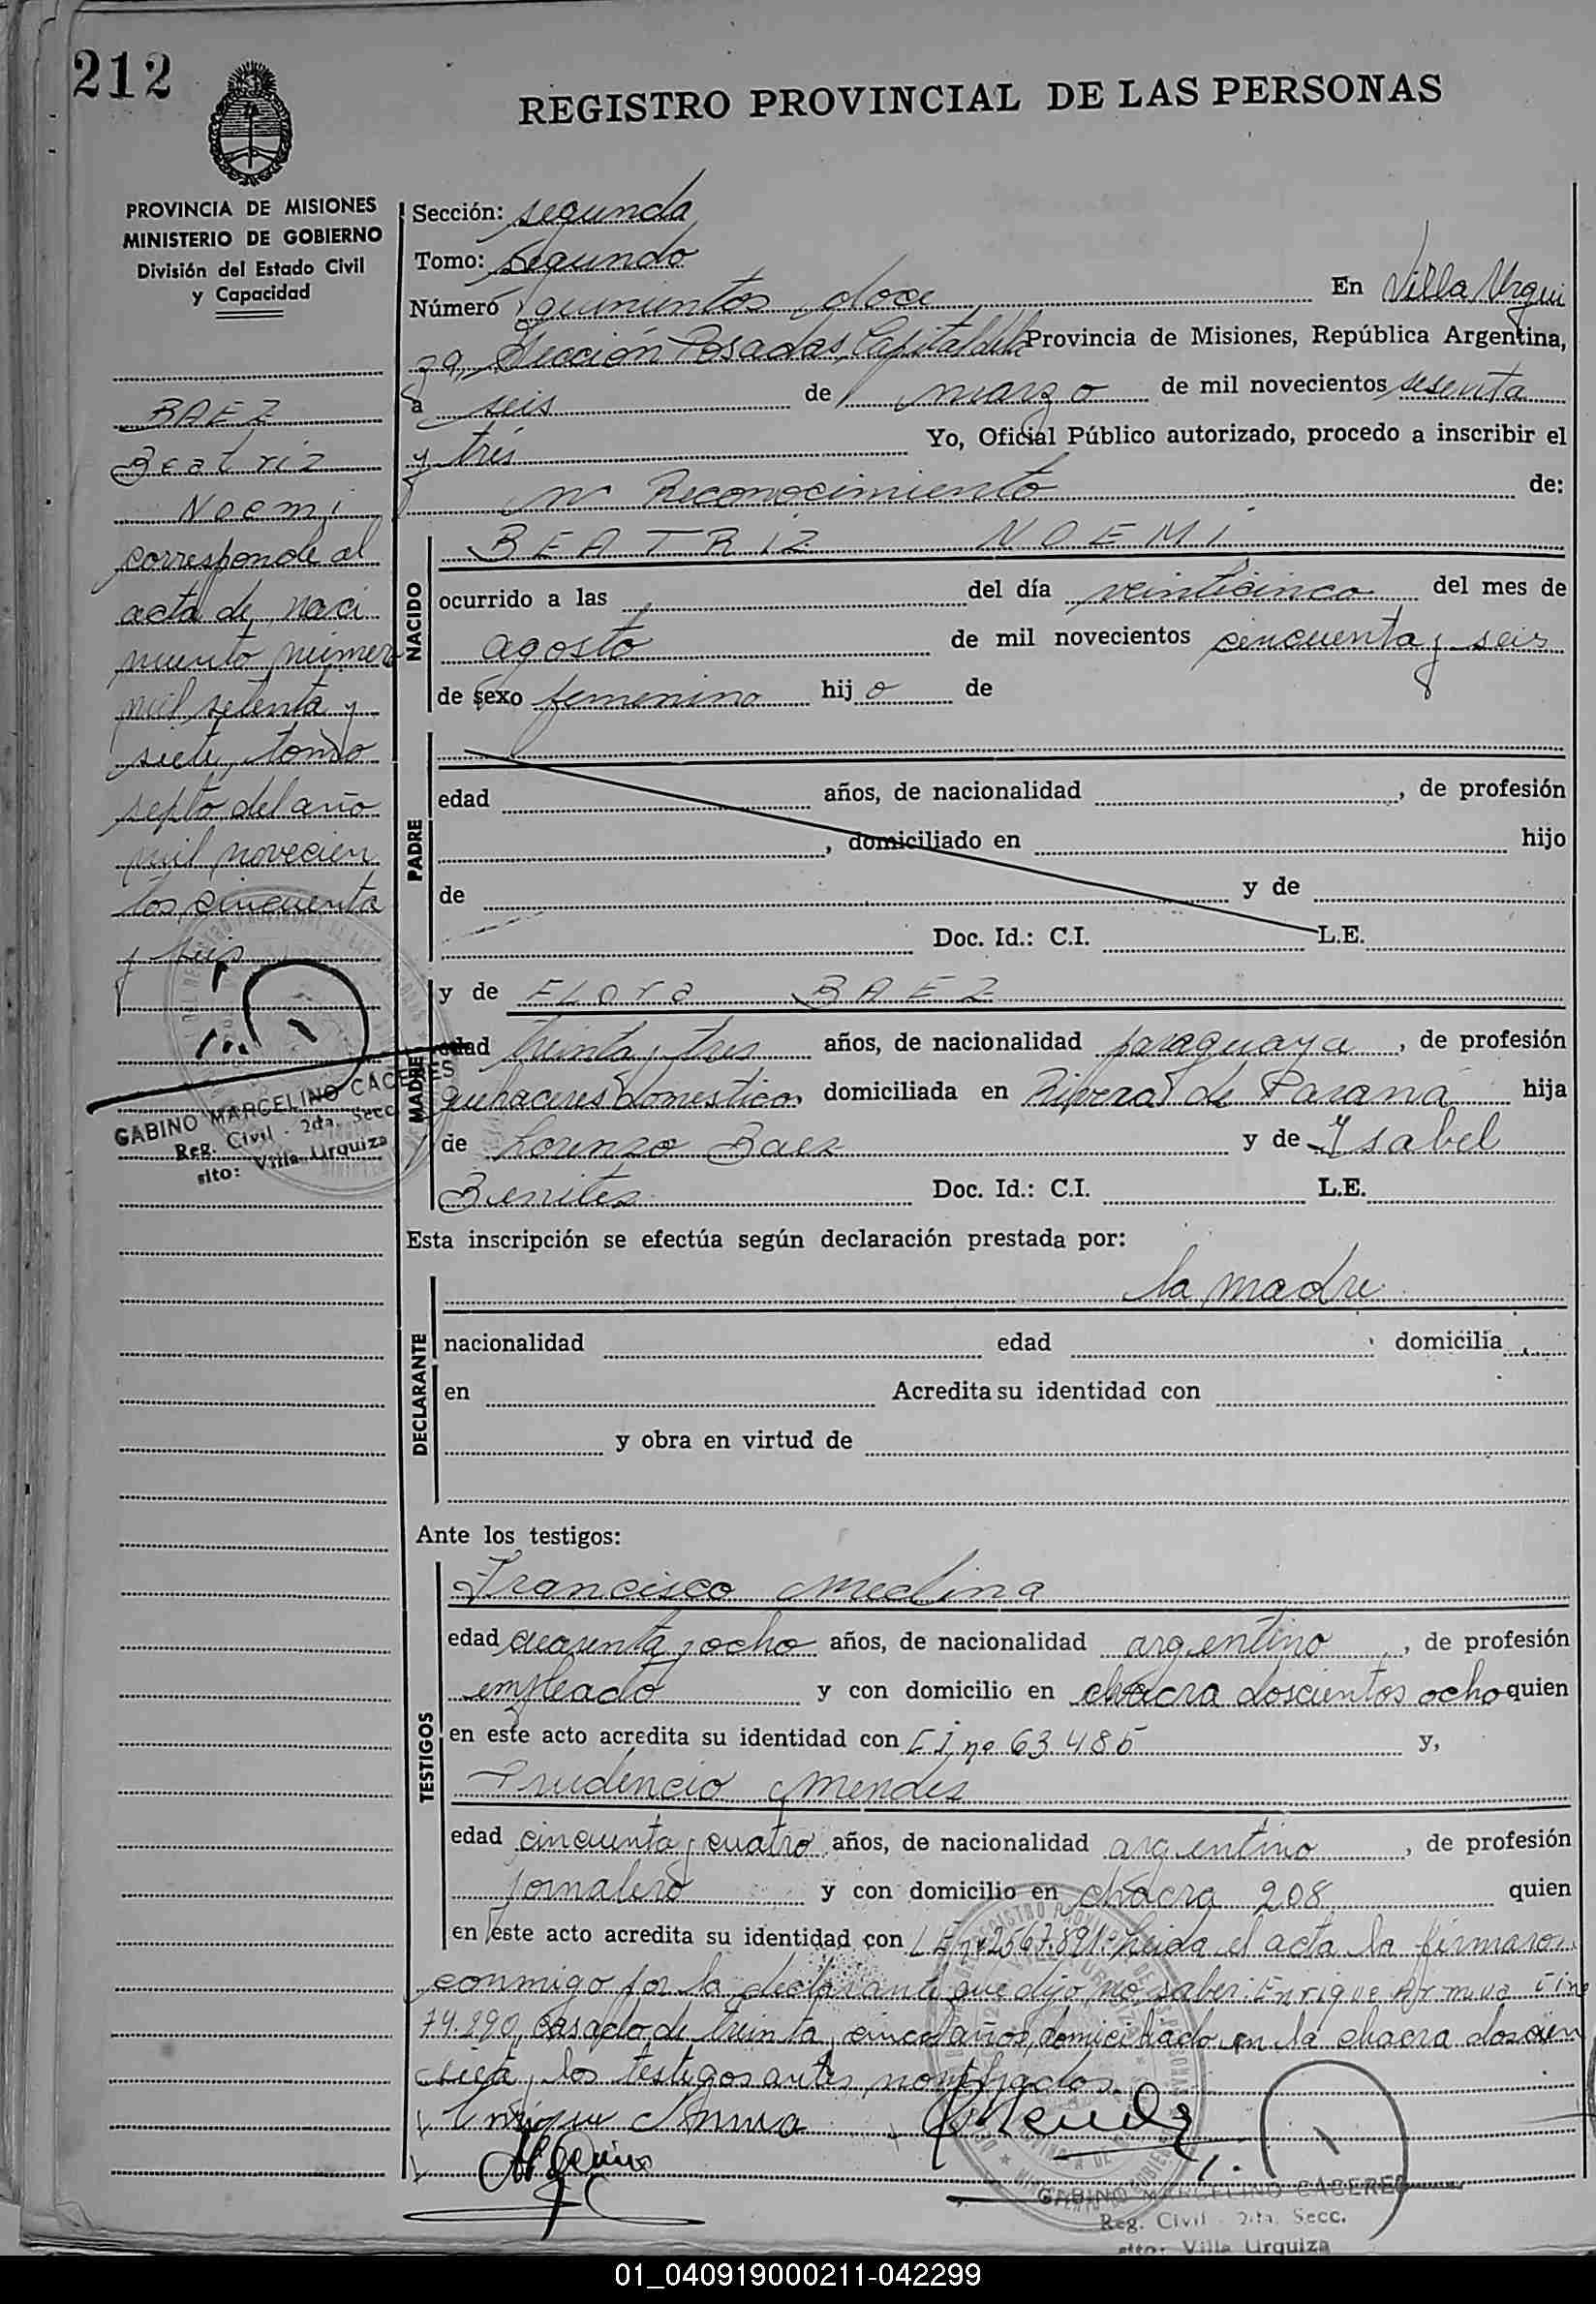 212
REGISTRO PROVINCIAL DE LAS PERSONAS
PROVINCIA DE MISIONES
MINISTERIO DE GOBIERNO
División del Estado Civil
y Capacidad
BAEZ
Beatriz
Noemi
corresponde al
acta de naci
miento númer
mil setenta y
siete, tomo
septo del año
mil novecien
tos cincuenta
y seis
GABINO MARCELINO CACERES
Reg. Civil - 2da. Secc
sito: Villa Urquiza
Sección: segunda
Tomo: segundo
Número quinientos doce En Villa Urqui
za, Sección Posadas, Capital de la Provincia de Misiones, República Argentina,
a seis de marzo de mil novecientos sesenta
y trés Yo, Oficial Público autorizado, procedo a inscribir el
Reconocimiento de:
NACIDO
BEATRIZ NOEMI
ocurrido a las del día veinticinco del mes de
agosto de mil novecientos cincuenta y seis
de sexo femenino hij a de
PADRE
edad años, de nacionalidad , de profesión
, domiciliado en hijo
de y de
Doc. Id.: C.I. L.E.
MADRE
y de Flora BAEZ
edad treinta y tres años, de nacionalidad paraguaya, de profesión
quehaceres domesticos domiciliada en Ribera de Paraná hija
de Lorenzo Baez y de Ysabel
Benites Doc. Id.: C.I. L.E.
Esta inscripción se efectúa según declaración prestada por:
DECLARANTE
la madre
nacionalidad edad domicilia
en Acredita su identidad con
y obra en virtud de
Ante los testigos:
TESTIGOS
Francisco Medina
edad cuarenta y ocho años, de nacionalidad argentino, de profesión
empleado y con domicilio en chacra doscientos ocho quien
en este acto acredita su identidad con C I nº 63.485 y,
Prudencio Mendes
edad cincuenta y cuatro años, de nacionalidad argentino, de profesión
jornalero y con domicilio en chacra 208 quien
en este acto acredita su identidad con L E nº 2567.891. Leida el acta la firmaron
conmigo por la declarante que dijo no saber: Enrique
74.290, casado de treinta y cinco años, domiciliado en la chacra doscien
siete y los testigos antes nombrados.
GABINO MARCELINO CACERES
Reg. Civil - 2da. Secc.
sito: Villa Urquiza
01_040919000211-042299